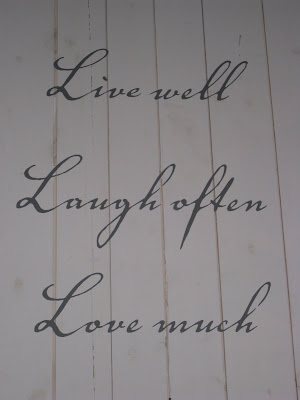 Live well
Laugh often
Love much